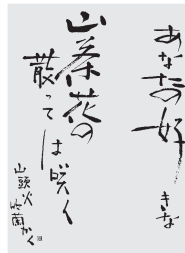 あなたの好
きな
山茶花の
散っては咲く
山頭火
かく